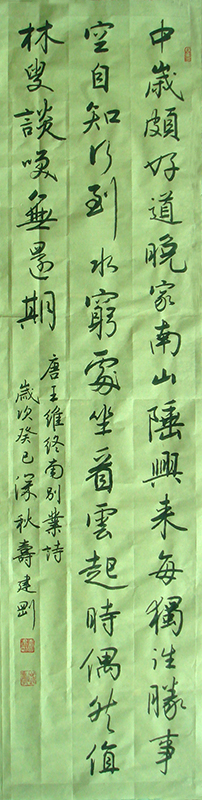 中歲頗好道晚家南山陲興来每獨往勝事
空自知行到水窮處坐看雲起時偶然值
林叟談唤無還期
唐王維終南别業詩
歲次癸巳深秋壽建剛